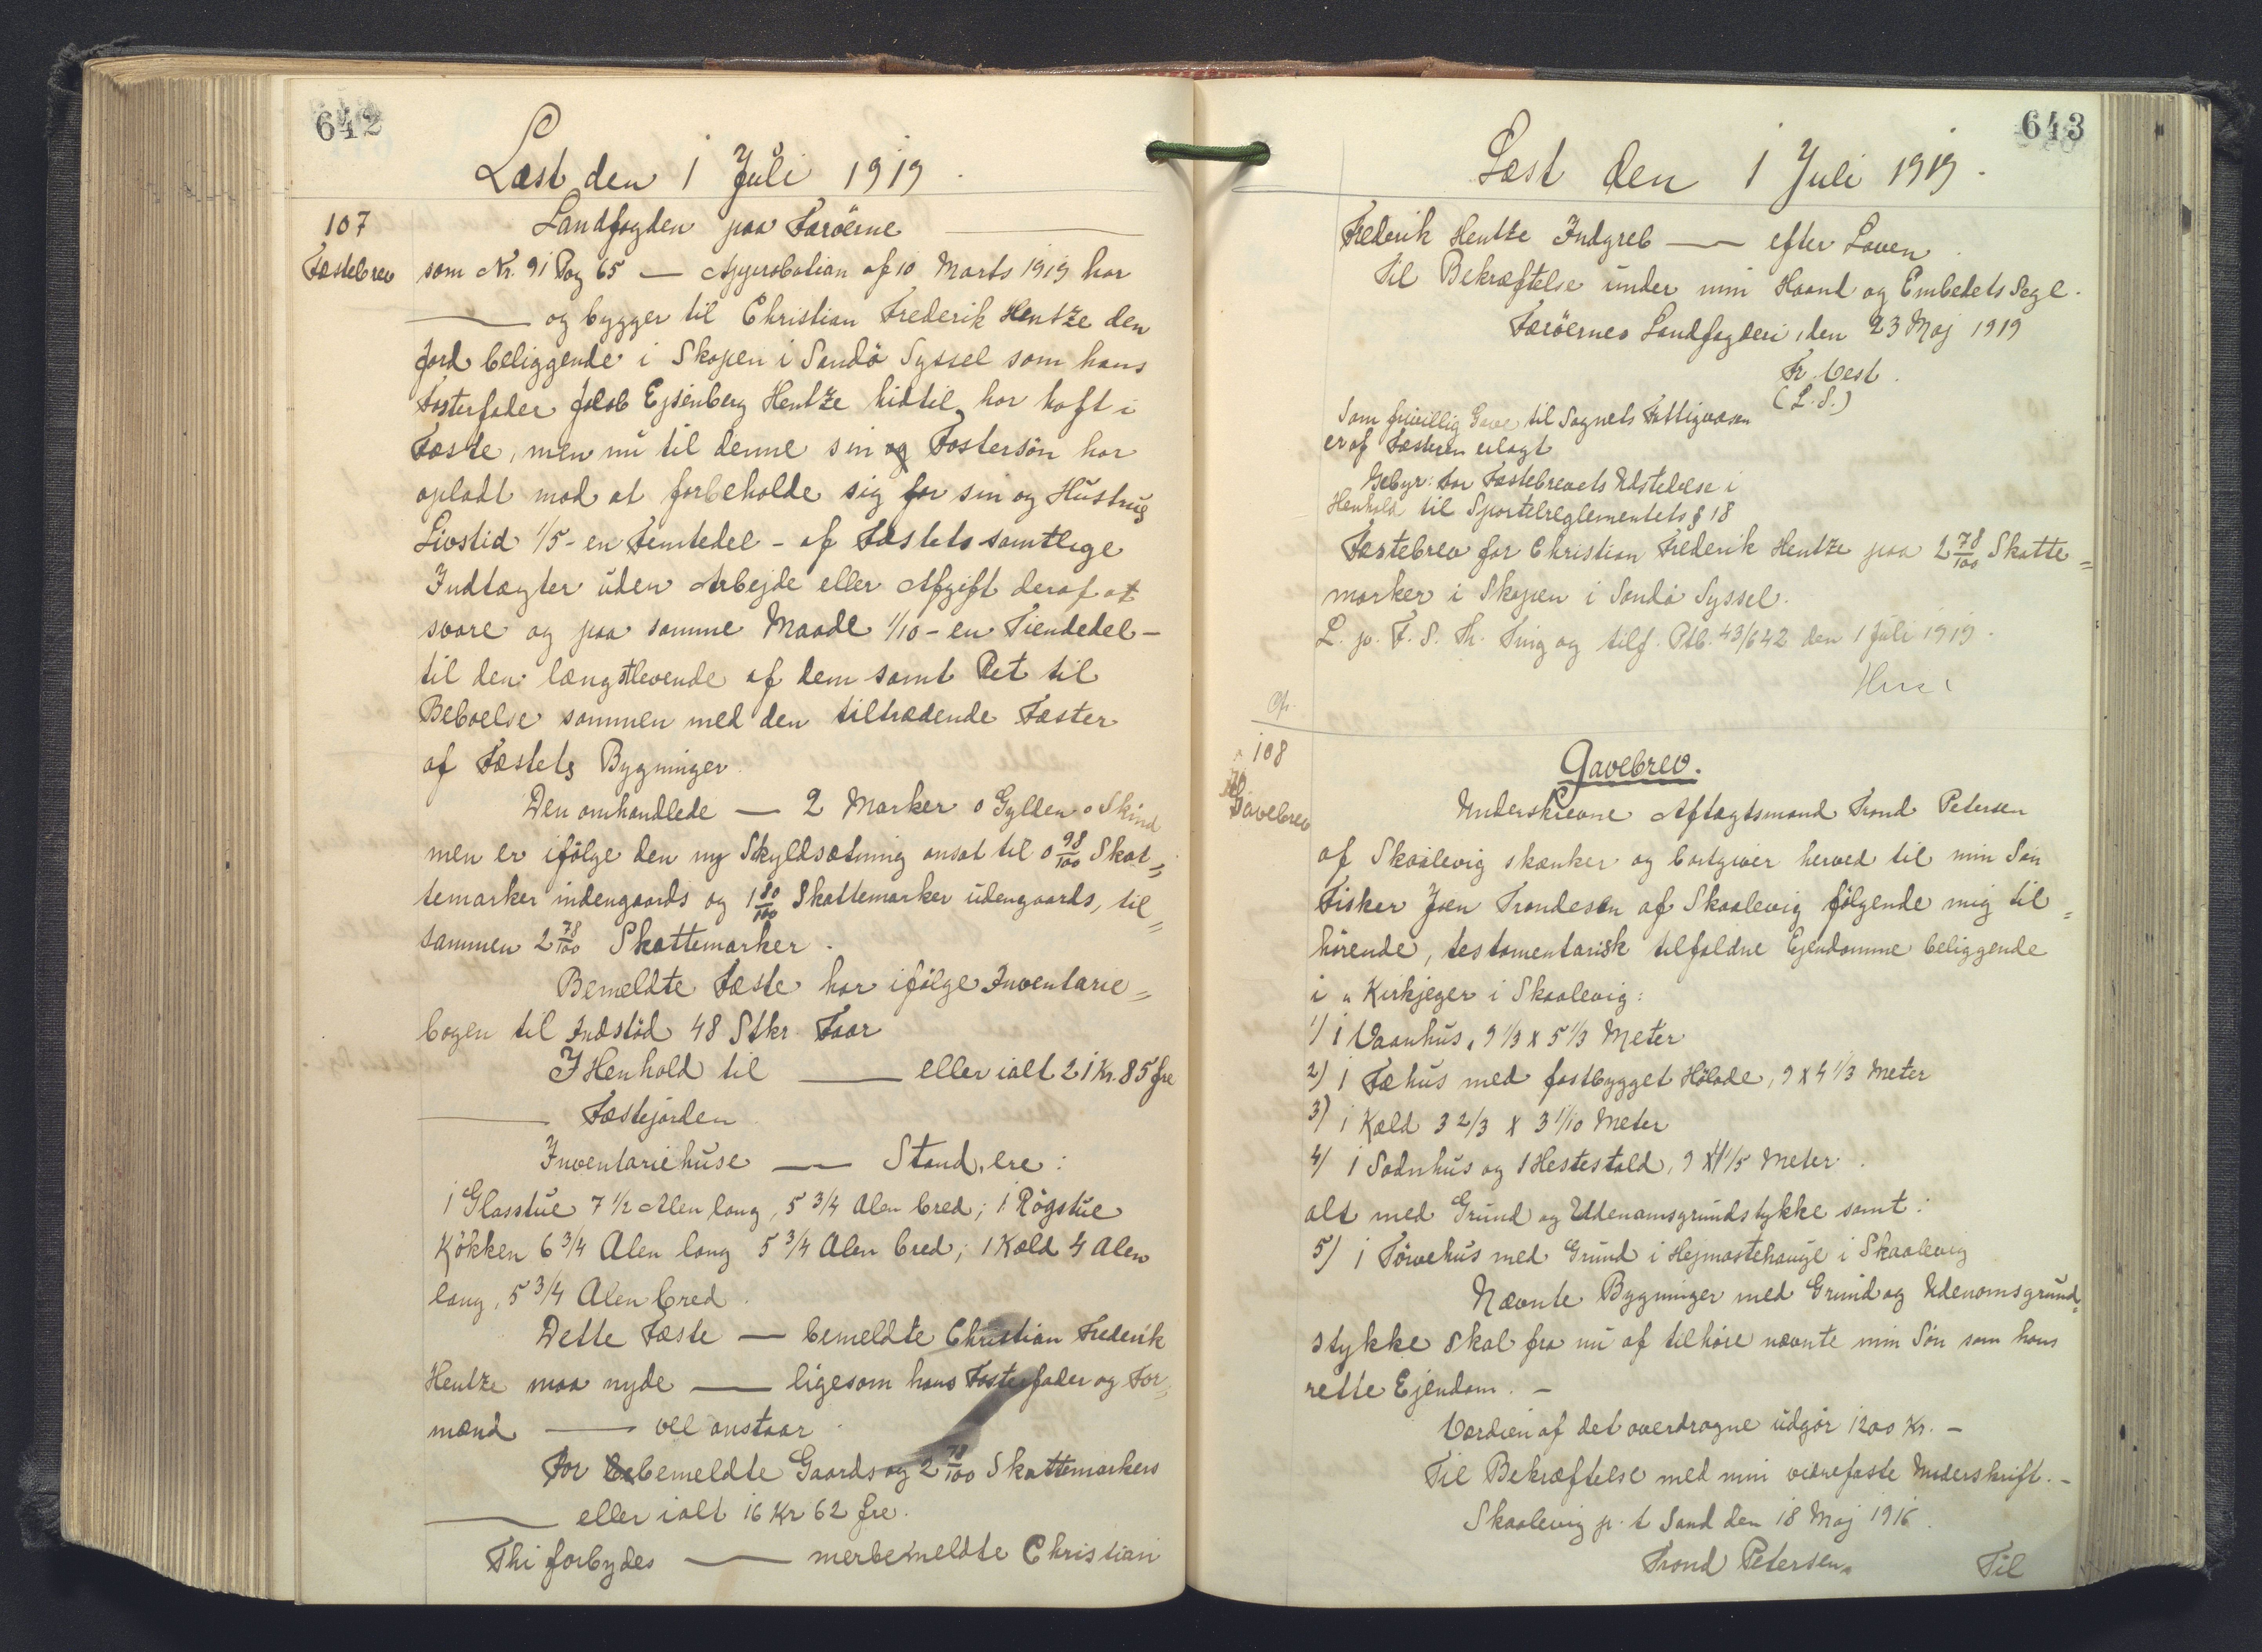 642
Læst den 1 Juli 1919.
107
Fæstebrev
Landfogden paa Færöerne
som Nr. 91 Pag 65 — Approbation af 10 Marts 1919 har
— og bygger til Christian Frederik Hentze den
Jord beliggende i Skopen i Sandö Syssel som hans
Fosterfader Jakob Ejsenberg Hentze hidtil har haft i
Fæste, men nu til denne sin og Fostersön har
opladt mod at forbeholde sig for sin og Hustrus
Livstid 1/5 - en Femtedel - af Fæstets samtlige
Indtægter uden Arbejde eller Afgift deraf at
svare og paa samme Maade 1/10 - en Tiendedel -
til den længstlevende af dem samt Ret til
Beboelse sammen med den tiltrædende Fæster
af Fæstets Bygninger.
Den omhandlede — 2 Marker 0 Gylden 0 Skind
men er ifölge den ny Skyldsætning ansat til 0 98/100 Skat=
temarker indengaards og 1 80/100 Skattemarker udengaards, til=
sammen 2 78/100 Skattemarker.
Bemeldte Fæste har ifölge Inventarie=
bogen til Indstöd 48 Stkr. Faar
I Henhold til — eller ialt 21 Kr. 85 Øre
— Fæstejorden
Inventariehuse — Stand, ere:
1 Glasstue 7 1/2 Alen lang, 5 3/4 Alen bred; 1 Rögstue
Kökken 6 3/4 Alen lang 5 3/4 Alen bred; 1 Kæld 4 Alen
lang, 5 3/4 Alen bred.
Dette Fæste — bemeldte Christian Frederik
Hentze maa nyde — ligesom hans Fosterfader og For=
mænd — vel anstaar.
For bebemeldte Gaards og 2 78/100 Skattemarkers
— eller ialt 16 Kr 62 Øre.
Thi forbydes — merbemeldte Christian
643
Læst den 1 Juli 1919.
Frederik Hentze Indgreb — efter Loven.
Til Bekræftelse under min Haand og Embedets Segl.
Færöernes Landfogderi, den 23 Maj 1919
Fr. Vest.
(L. S.)
Som frivillig Gave til Sognets Fattigvæsen
er af Fæsteren erlagt
Gebyr: for Fæstebrevets Udstedelse i
Henhold til Sportelreglementets § 18
Fæstebrev for Christian Frederik Hentze paa 2 78/100 Skatte=
marker i Skopen i Sandö Syssel.
L. p. F. S. Th. Ting og tilf. Ptb. 43/642 den 1 Juli 1919.
108
Gavebrev
Gavebrev.
Underskrevne Aftægtsmand Trond Petersen
af Skaalevig skænker og bortgiver herved til min Sön
Fisker Joen Trondesen af Skaalevig fölgende mig til=
hörende, testamentarisk tilfaldne Ejendomme beliggende
i a Kirkjeger i Skaalevig:
1) 1 Vaanhus, 9 1/3 x 5 1/3 Meter
2) 1 Fæhus med fastbygget Hölade, 9 x 4 1/3 Meter
3) 1 Kæld 3 2/3 x 3 1/10 Meter
4) 1 Sodnhus og 1 Hestestald, 9 x 4 1/5 Meter.
alt med Grund og Udenomsgrundstykke samt:
5) 1 Törvehus med Grund i Hejmastehauge i Skaalevig
Nævnte Bygninger med Grund og Udenomsgrund=
stykke skal fra nu af tilhöre nævnte min Sön som hans
rette Ejendom. -
Værdien af det overdragne udgör 1200 Kr. -
Til Bekræftelse med min vidnefaste Underskrift. -
Skaalevig p. t Sand den 18 Maj 1916.
Trond Petersen.
Til